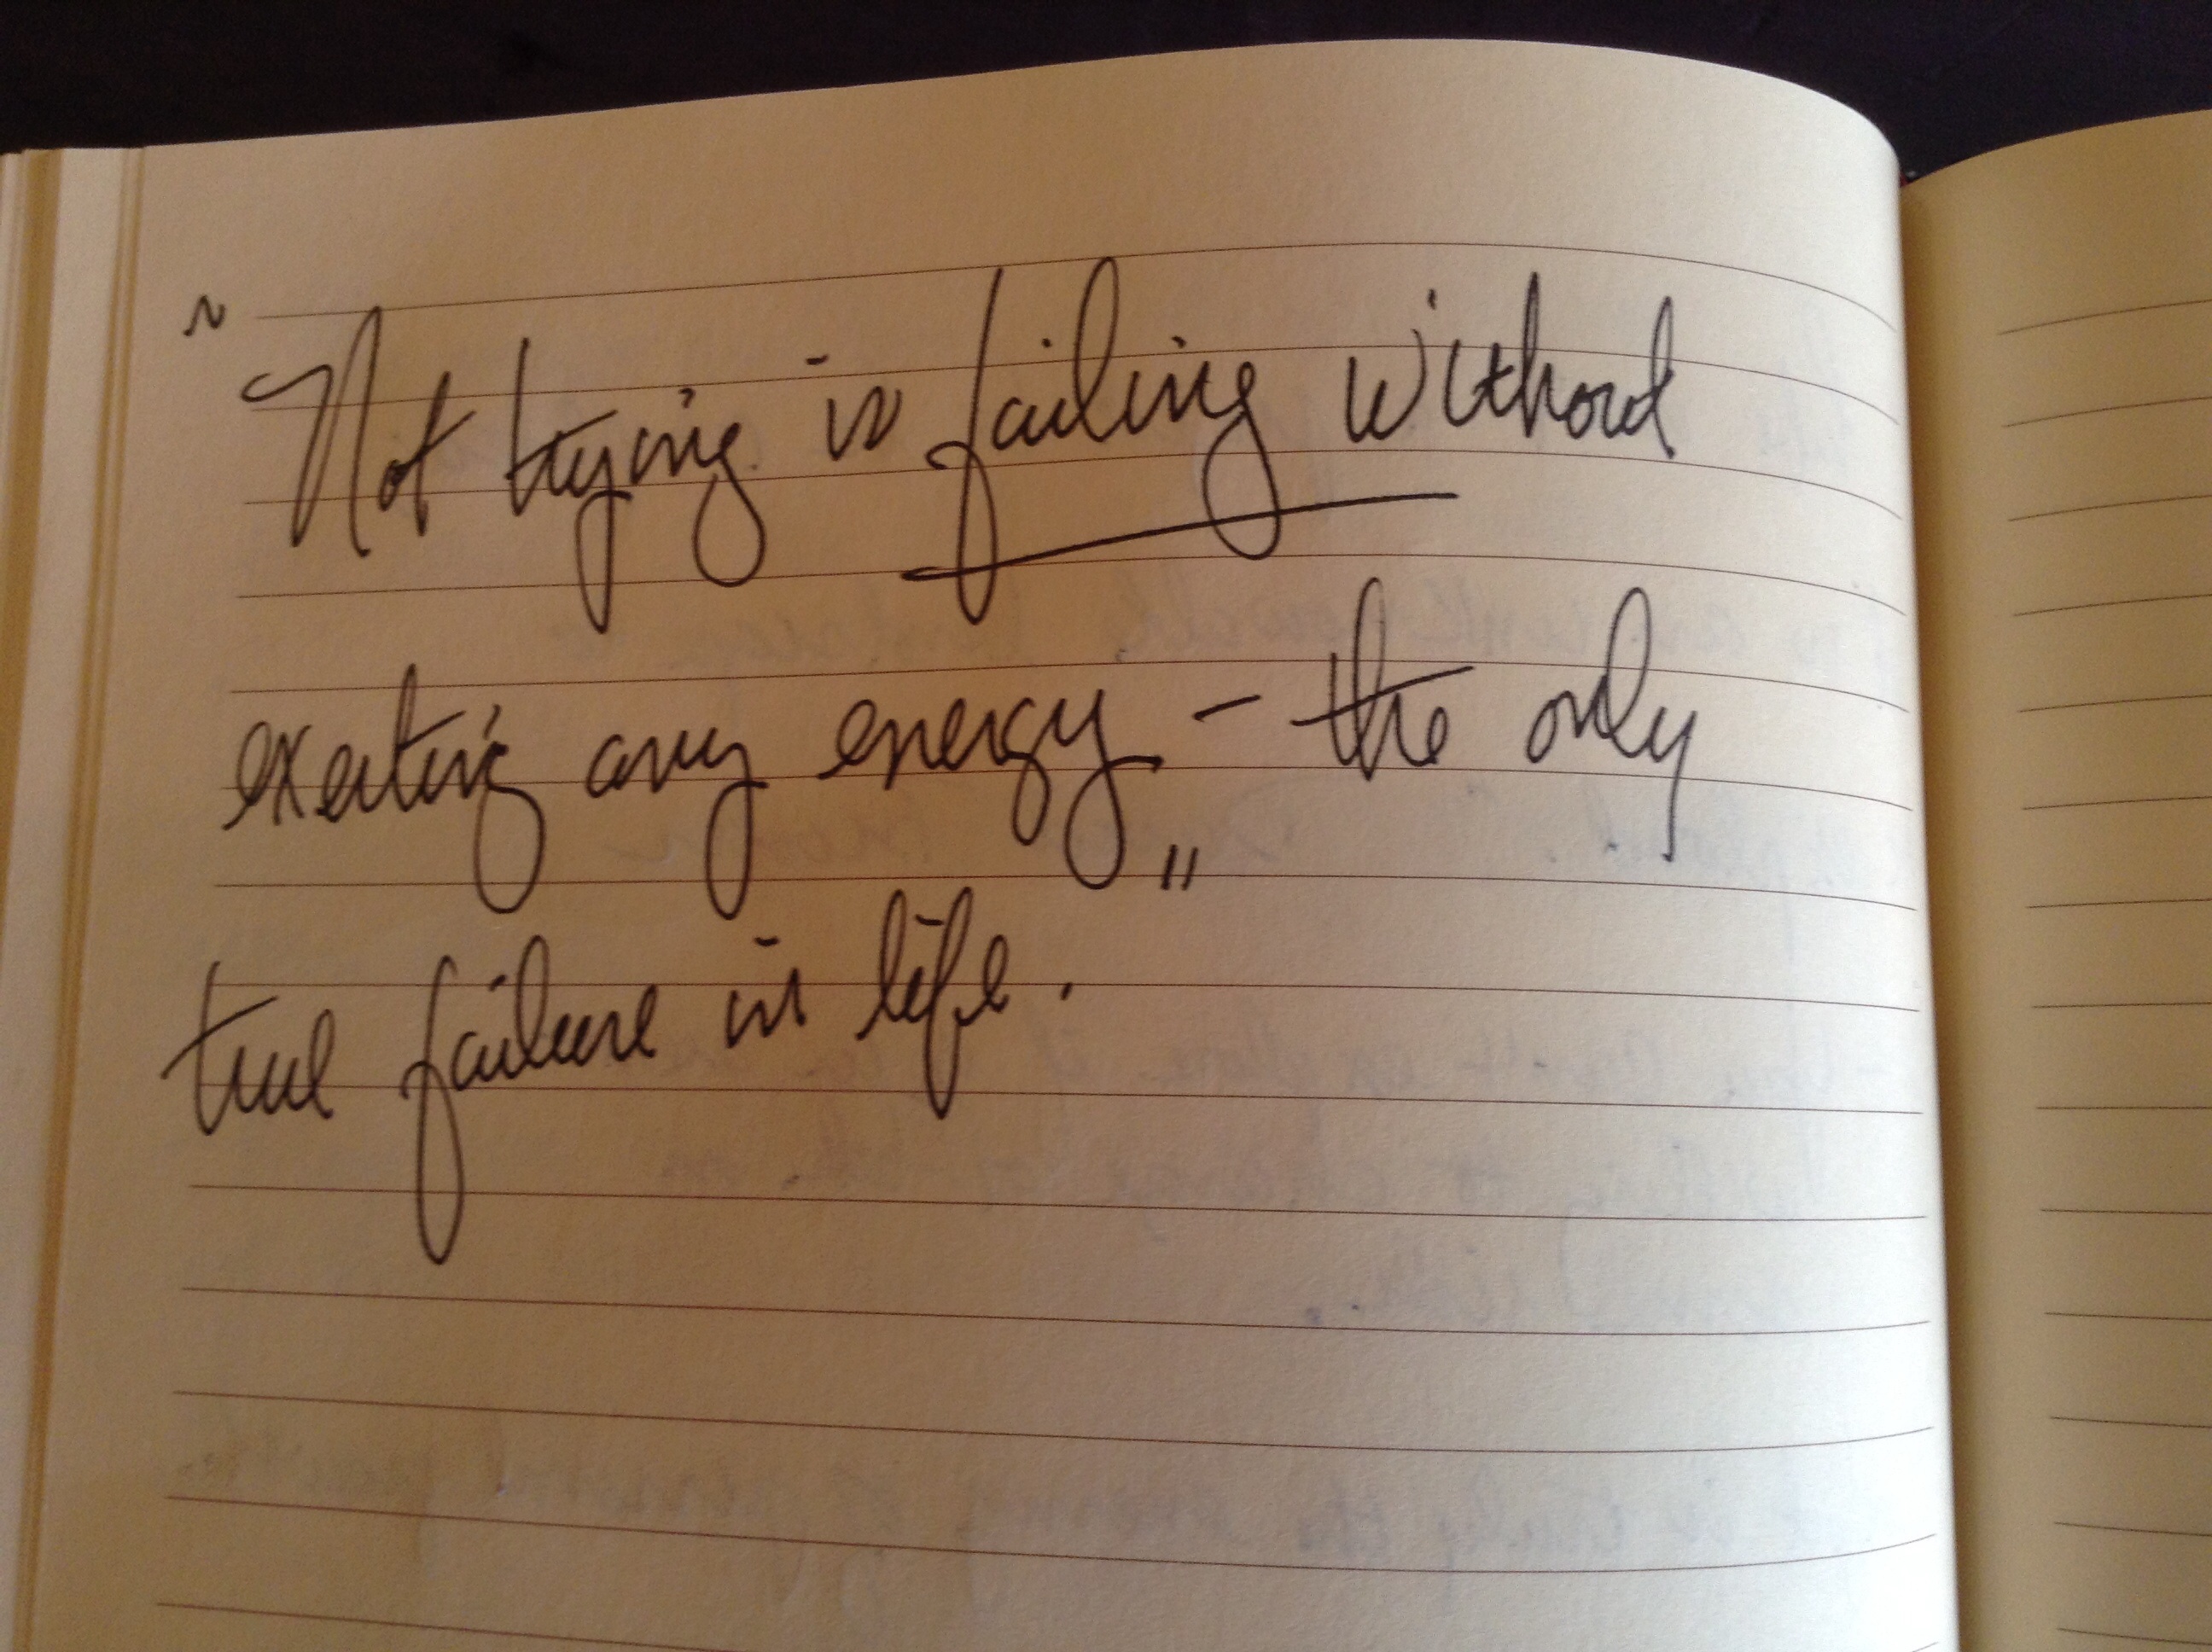 "Not trying is failing without
exerting any energy" - the only
true failure in life.